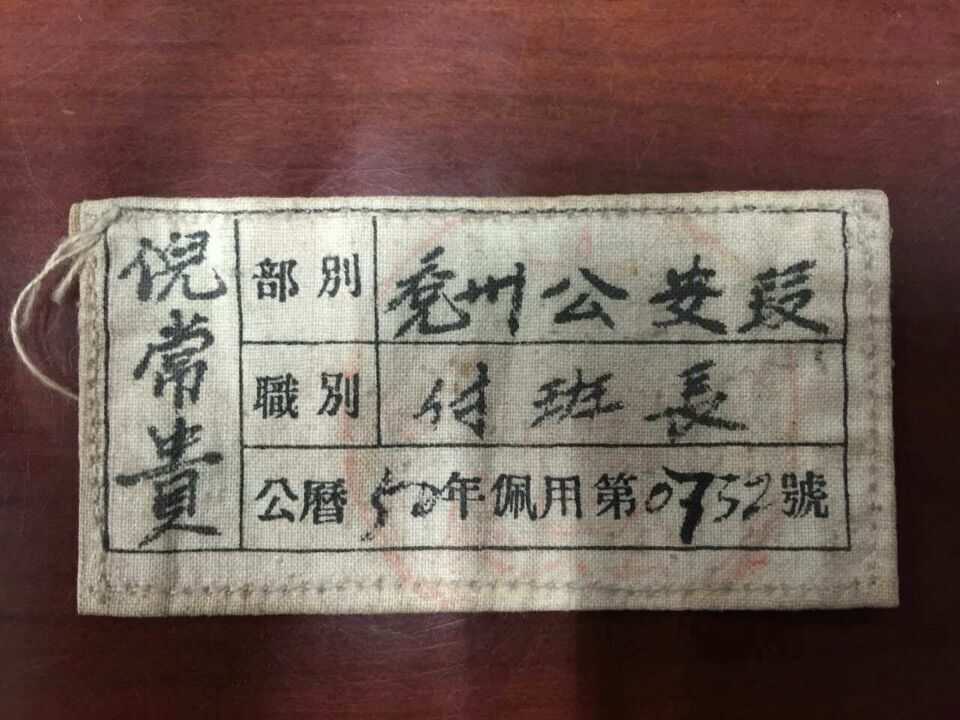 倪常貴
部別 兗州公安段
職別 付班長
公曆50年佩用第0732號